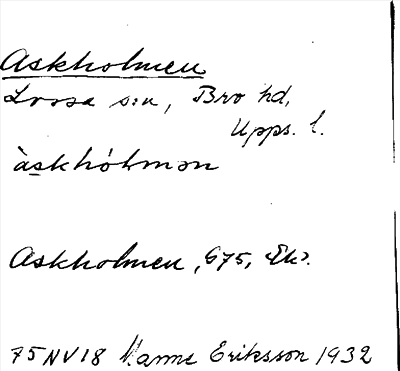 Askholmen
Lossa sn, Bro hd,
Upps. l.
àskhólmən
Askholmen, G75, Ek.
75NV18 Manne Eriksson 1932